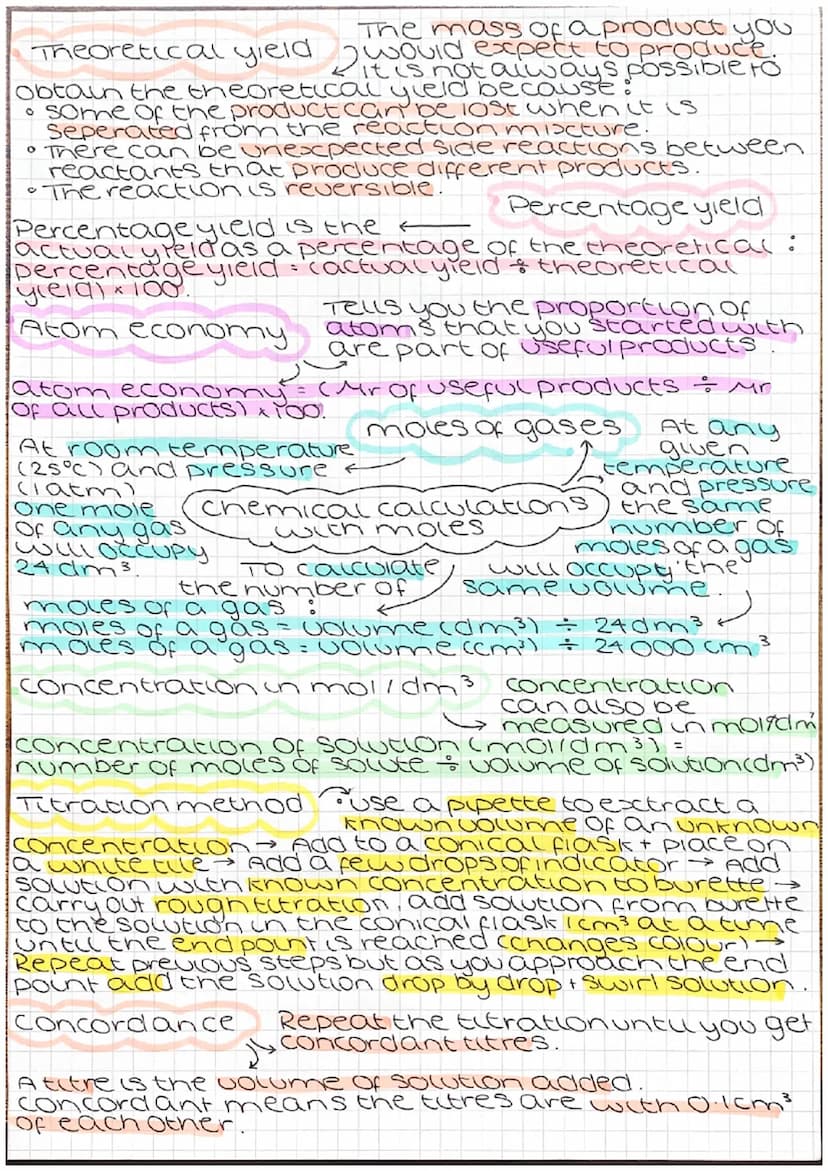 Theoretical yield
The mass of a product you
would expect to produce.
It is not always possible to
obtain the theoretical yield because:
• some of the product can be lost when it is
seperated from the reaction mixture.
• There can be unexpected side reactions between
reactants that produce different products.
• The reaction is reversible.
Percentage yield
Percentage yield is the
actual yield as a percentage of the theoretical :
percentage yield = (actual yield ÷ theoretical
yield) × 100.
Atom economy
Tells you the proportion of
atoms that you started with
are part of useful products.
atom economy = (Mr of useful products ÷ Mr
of all products) × 100.
moles of gases
At room temperature
(25°C) and pressure
(1atm)
one mole
of any gas
will occupy
24dm³.
chemical calculations
with moles
At any
given
temperature
and pressure
the same
number of
moles of a gas
will occupy the
same volume.
To calculate
the number of
moles of a gas :
moles of a gas = volume (dm³) ÷ 24dm³
moles of a gas = volume (cm³) ÷ 24000 cm³
concentration in mol / dm³
concentration
can also be
measured in mol/dm³
concentration of solution (mol/dm³) =
number of moles of solute ÷ volume of solution (dm³)
Titration method
• use a pipette to extract a
known volume of an unknown
concentration → Add to a conical flask + place on
a white tile → Add a few drops of indicator → Add
solution with known concentration to burette →
carry out rough titration, add solution from burette
to the solution in the conical flask 1cm³ at a time
until the end point is reached (changes colour) →
Repeat previous steps but as you approach the end
point add the solution drop by drop + swirl solution.
Concordance
Repeat the titration until you get
concordant titres.
A titre is the volume of solution added.
Concordant means the titres are with 0.1cm³
of each other.